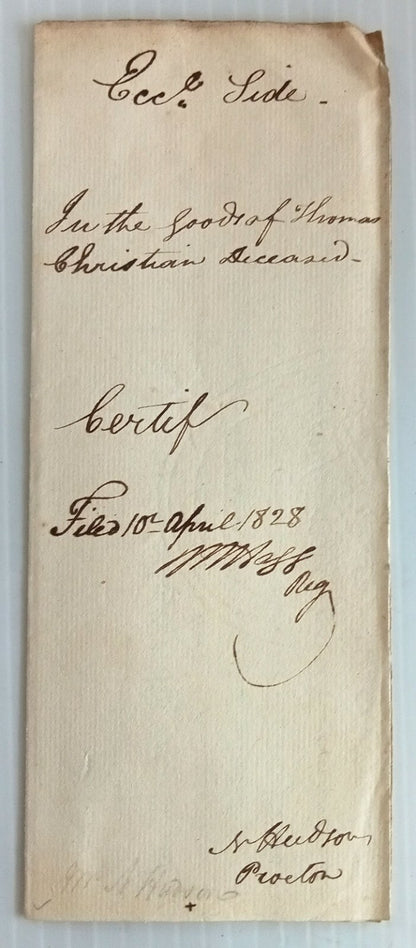 Eccl. Side -
In the Goods of Thomas
Christian Deceased -
Certif
Filed 10th April 1828
Reg
N Hudson
Proctor